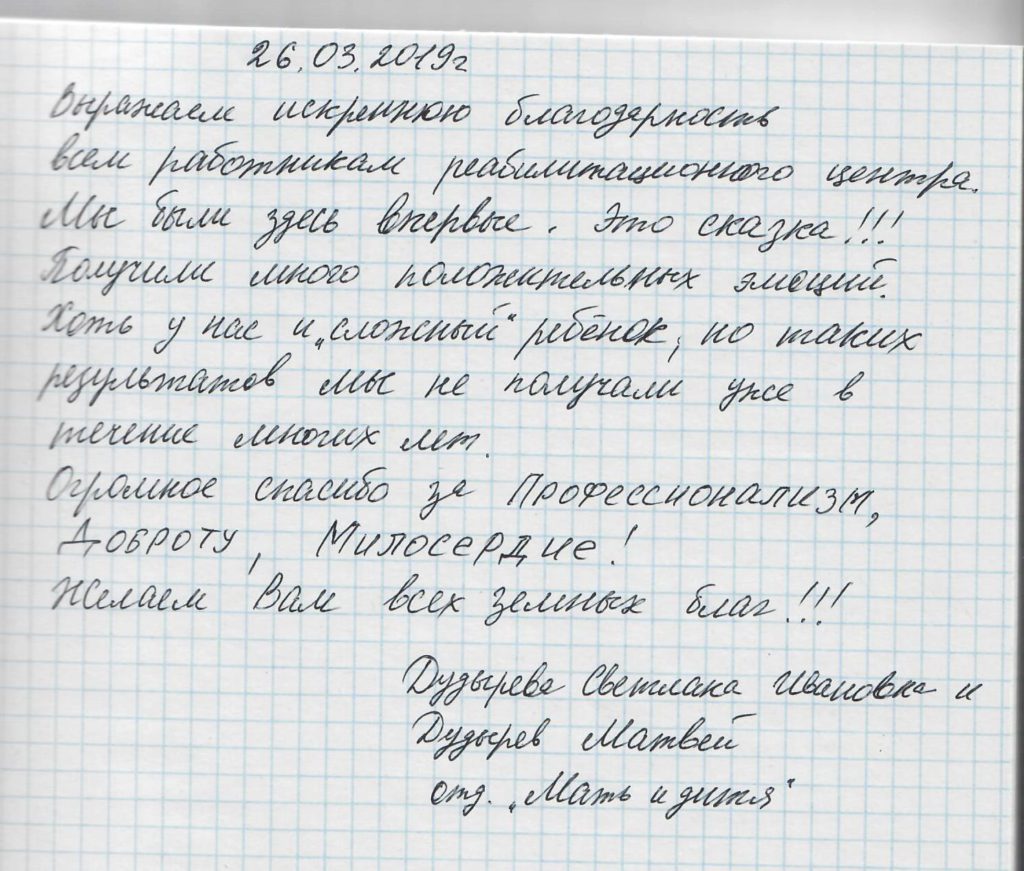 26.03.2019г
Выражаем искреннюю благодарность
всем работникам реабилитационного центра.
Мы были здесь впервые. Это сказка!!!
Получили много положительных эмоций.
Хоть у нас и „сложный" ребёнок, но таких
результатов мы не получали уже в
течение многих лет.
Огромное спасибо за Профессионализм,
Доброту, Милосердие!
Желаем Вам всех земных благ!!!
Дудырева Светлана Ивановна и
Дудырев Матвей
отд. „Мать и дитя"